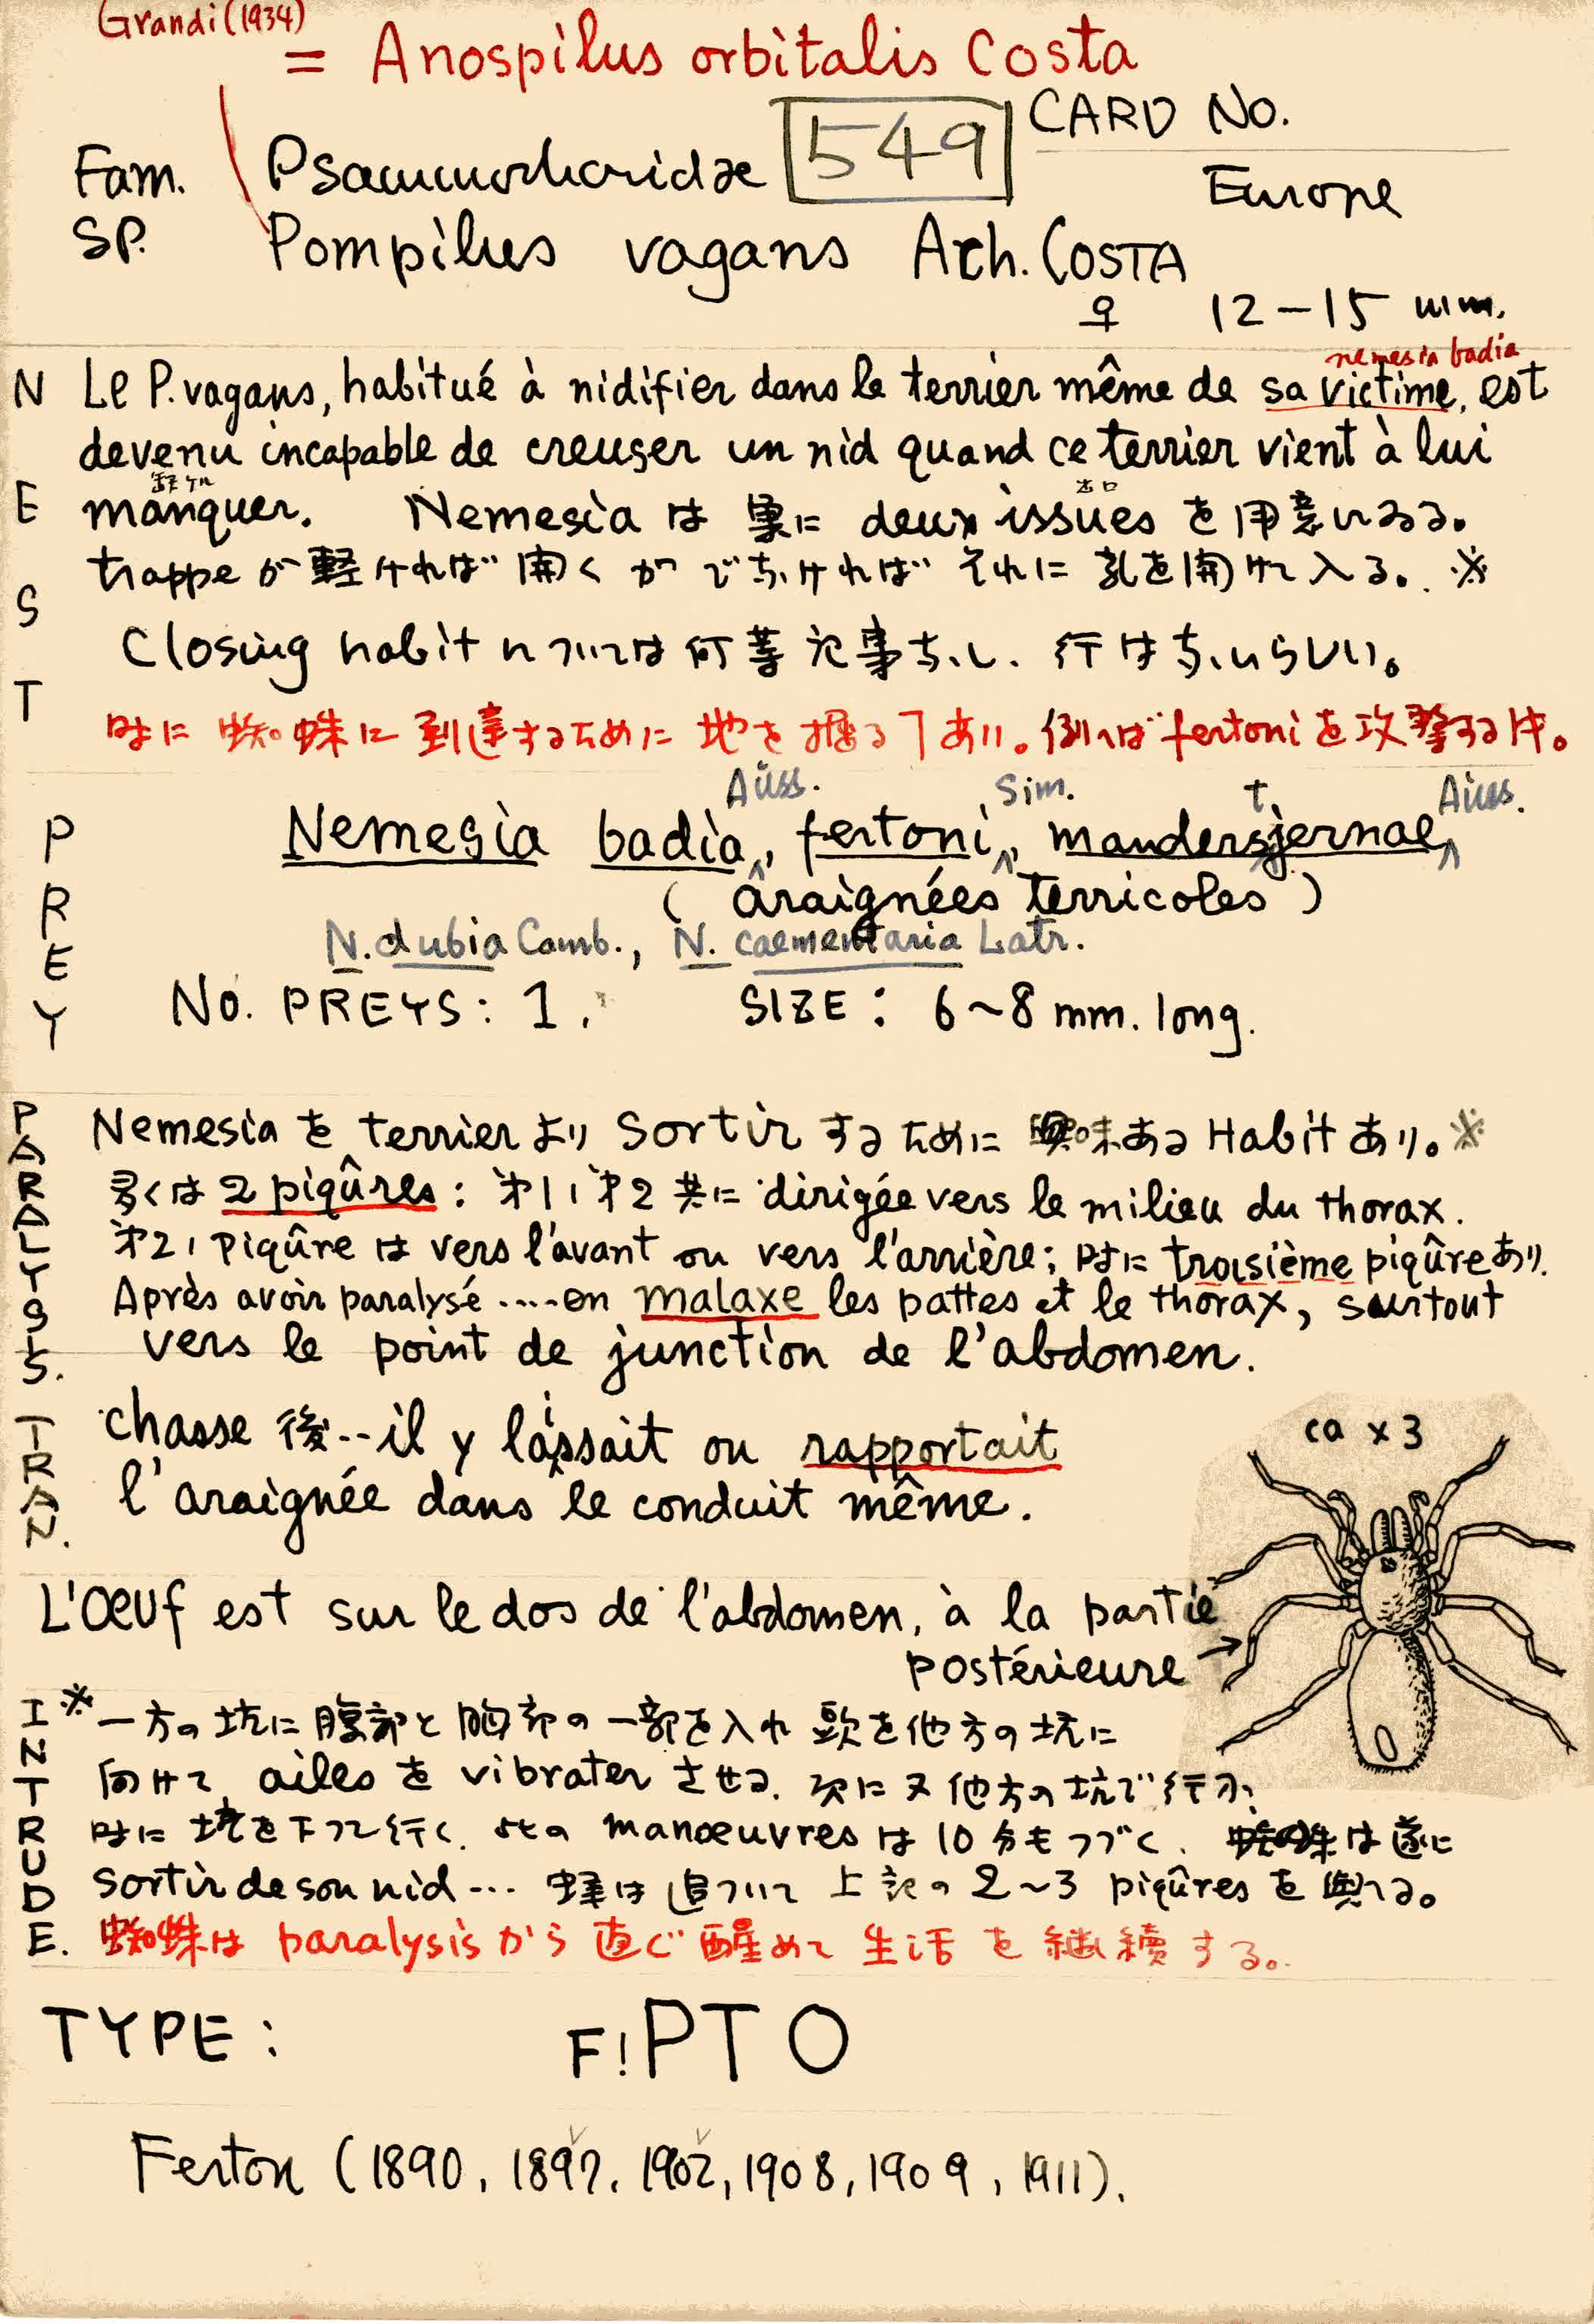 Grandi (1934)
= Anospilus orbitalis Costa
549 CARD No.
Fam. Psammocharidæ Europe
SP. Pompilus vagans Ach. COSTA
♀ 12-15 mm.
nemesia badia
NEST
Le P. vagans, habitué à nidifier dans le terrier même de sa victime, est
devenu incapable de creuser un nid quand ce terrier vient à lui
manquer. Nemesia は 裏に deux issues を用意している。
出口
trappe が軽ければ開くがでなければそれに孔を開けて入る。※
Closing habit については何等記事なし、行はないらしい。
時に蜘蛛に到達するために地を掘る ヿあり。例へば fertoni を攻撃する時。
PREY
Auss. Sim. t Auss.
Nemesia badia, fertoni, mandersjernae,
(araignées terricoles)
N. dubia Camb., N. caementaria Latr.
No. PREYS: 1. SIZE: 6~8 mm. long.
PARALYSIS.
Nemesia を terrier より sortir するために興味ある Habit あり。※
多くは 2 piqûres: 第1, 第2 共に dirigée vers le milieu du thorax.
第2, piqûre は vers l'avant ou vers l'arrière; 時に troisième piqûre あり.
Après avoir paralysé ....on malaxe les pattes et le thorax, surtout
vers le point de junction de l'abdomen.
TRAN.
chasse 後--il y laissait ou rapportait
l'araignée dans le conduit même.
ca x 3
L'Oeuf est sur le dos de l'abdomen, à la partie
postérieure →
INTRUDE.
※一方の坑に腹部と胸部の一部を入れ頭を他方の坑に
向けて ailes を vibrater させる. 次に又他方の坑で行ふ,
時に坑を下って行く. 此の manœuvres は 10 分もつづく. 蜘蛛は遂に
sortir de son nid... 蜂は追ついて上記の 2~3 piqûres を與へる。
蜘蛛は paralysis から直ぐ醒めて生活を継續する。
TYPE: F! PTO
Ferton (1890, 1897, 1902, 1908, 1909, 1911).